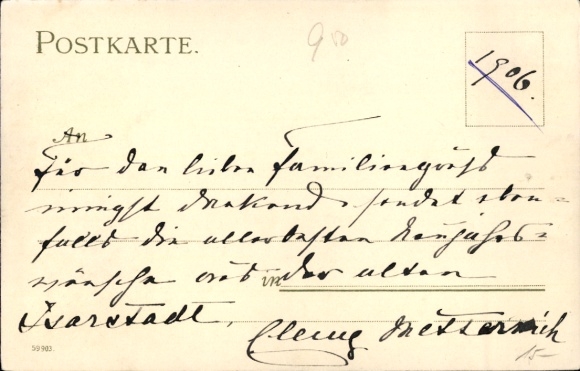 POSTKARTE.
9 50
1906.
An
Für den lieben Familiengruß
innigst dankend, sendet eben=
falls die allerbesten Neujahrs=
wünsche aus in der alten
Isarstadt,
Clemy Metternich
59903.
15-